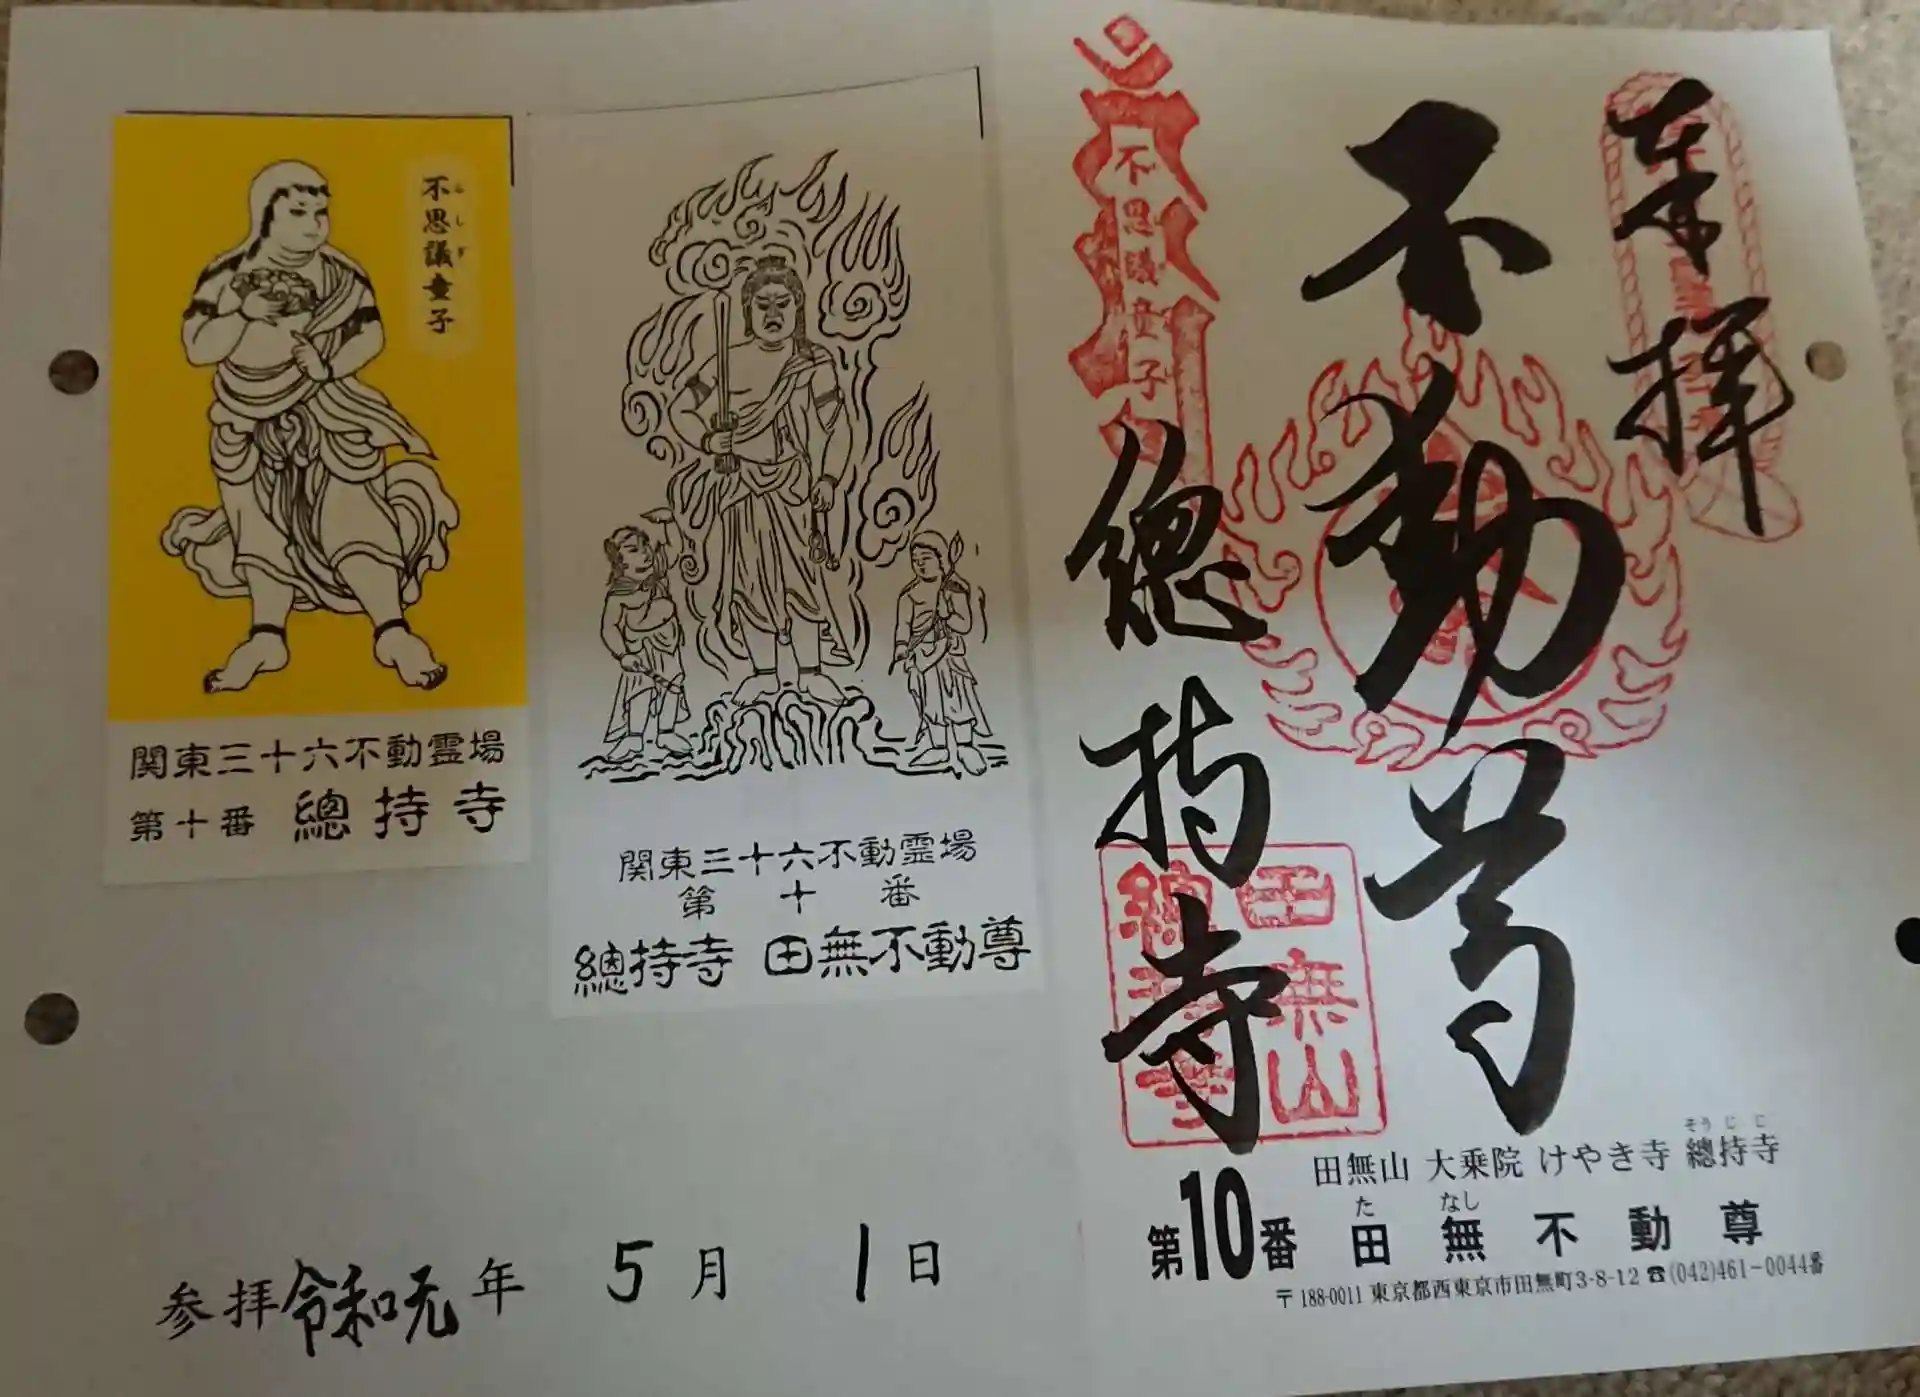 奉拝
不動尊
總持寺
不思議童子
田無山
總持寺
田無山 大乗院 けやき寺 總持寺
そうじじ
第10番 田無不動尊
た なし
〒188-0011 東京都西東京市田無町3-8-12 ☎(042)461-0044番
不思議童子
ふしぎ
関東三十六不動霊場
第十番 總持寺
関東三十六不動霊場
第十番
總持寺 田無不動尊
参拝 令和元年 5月 1日